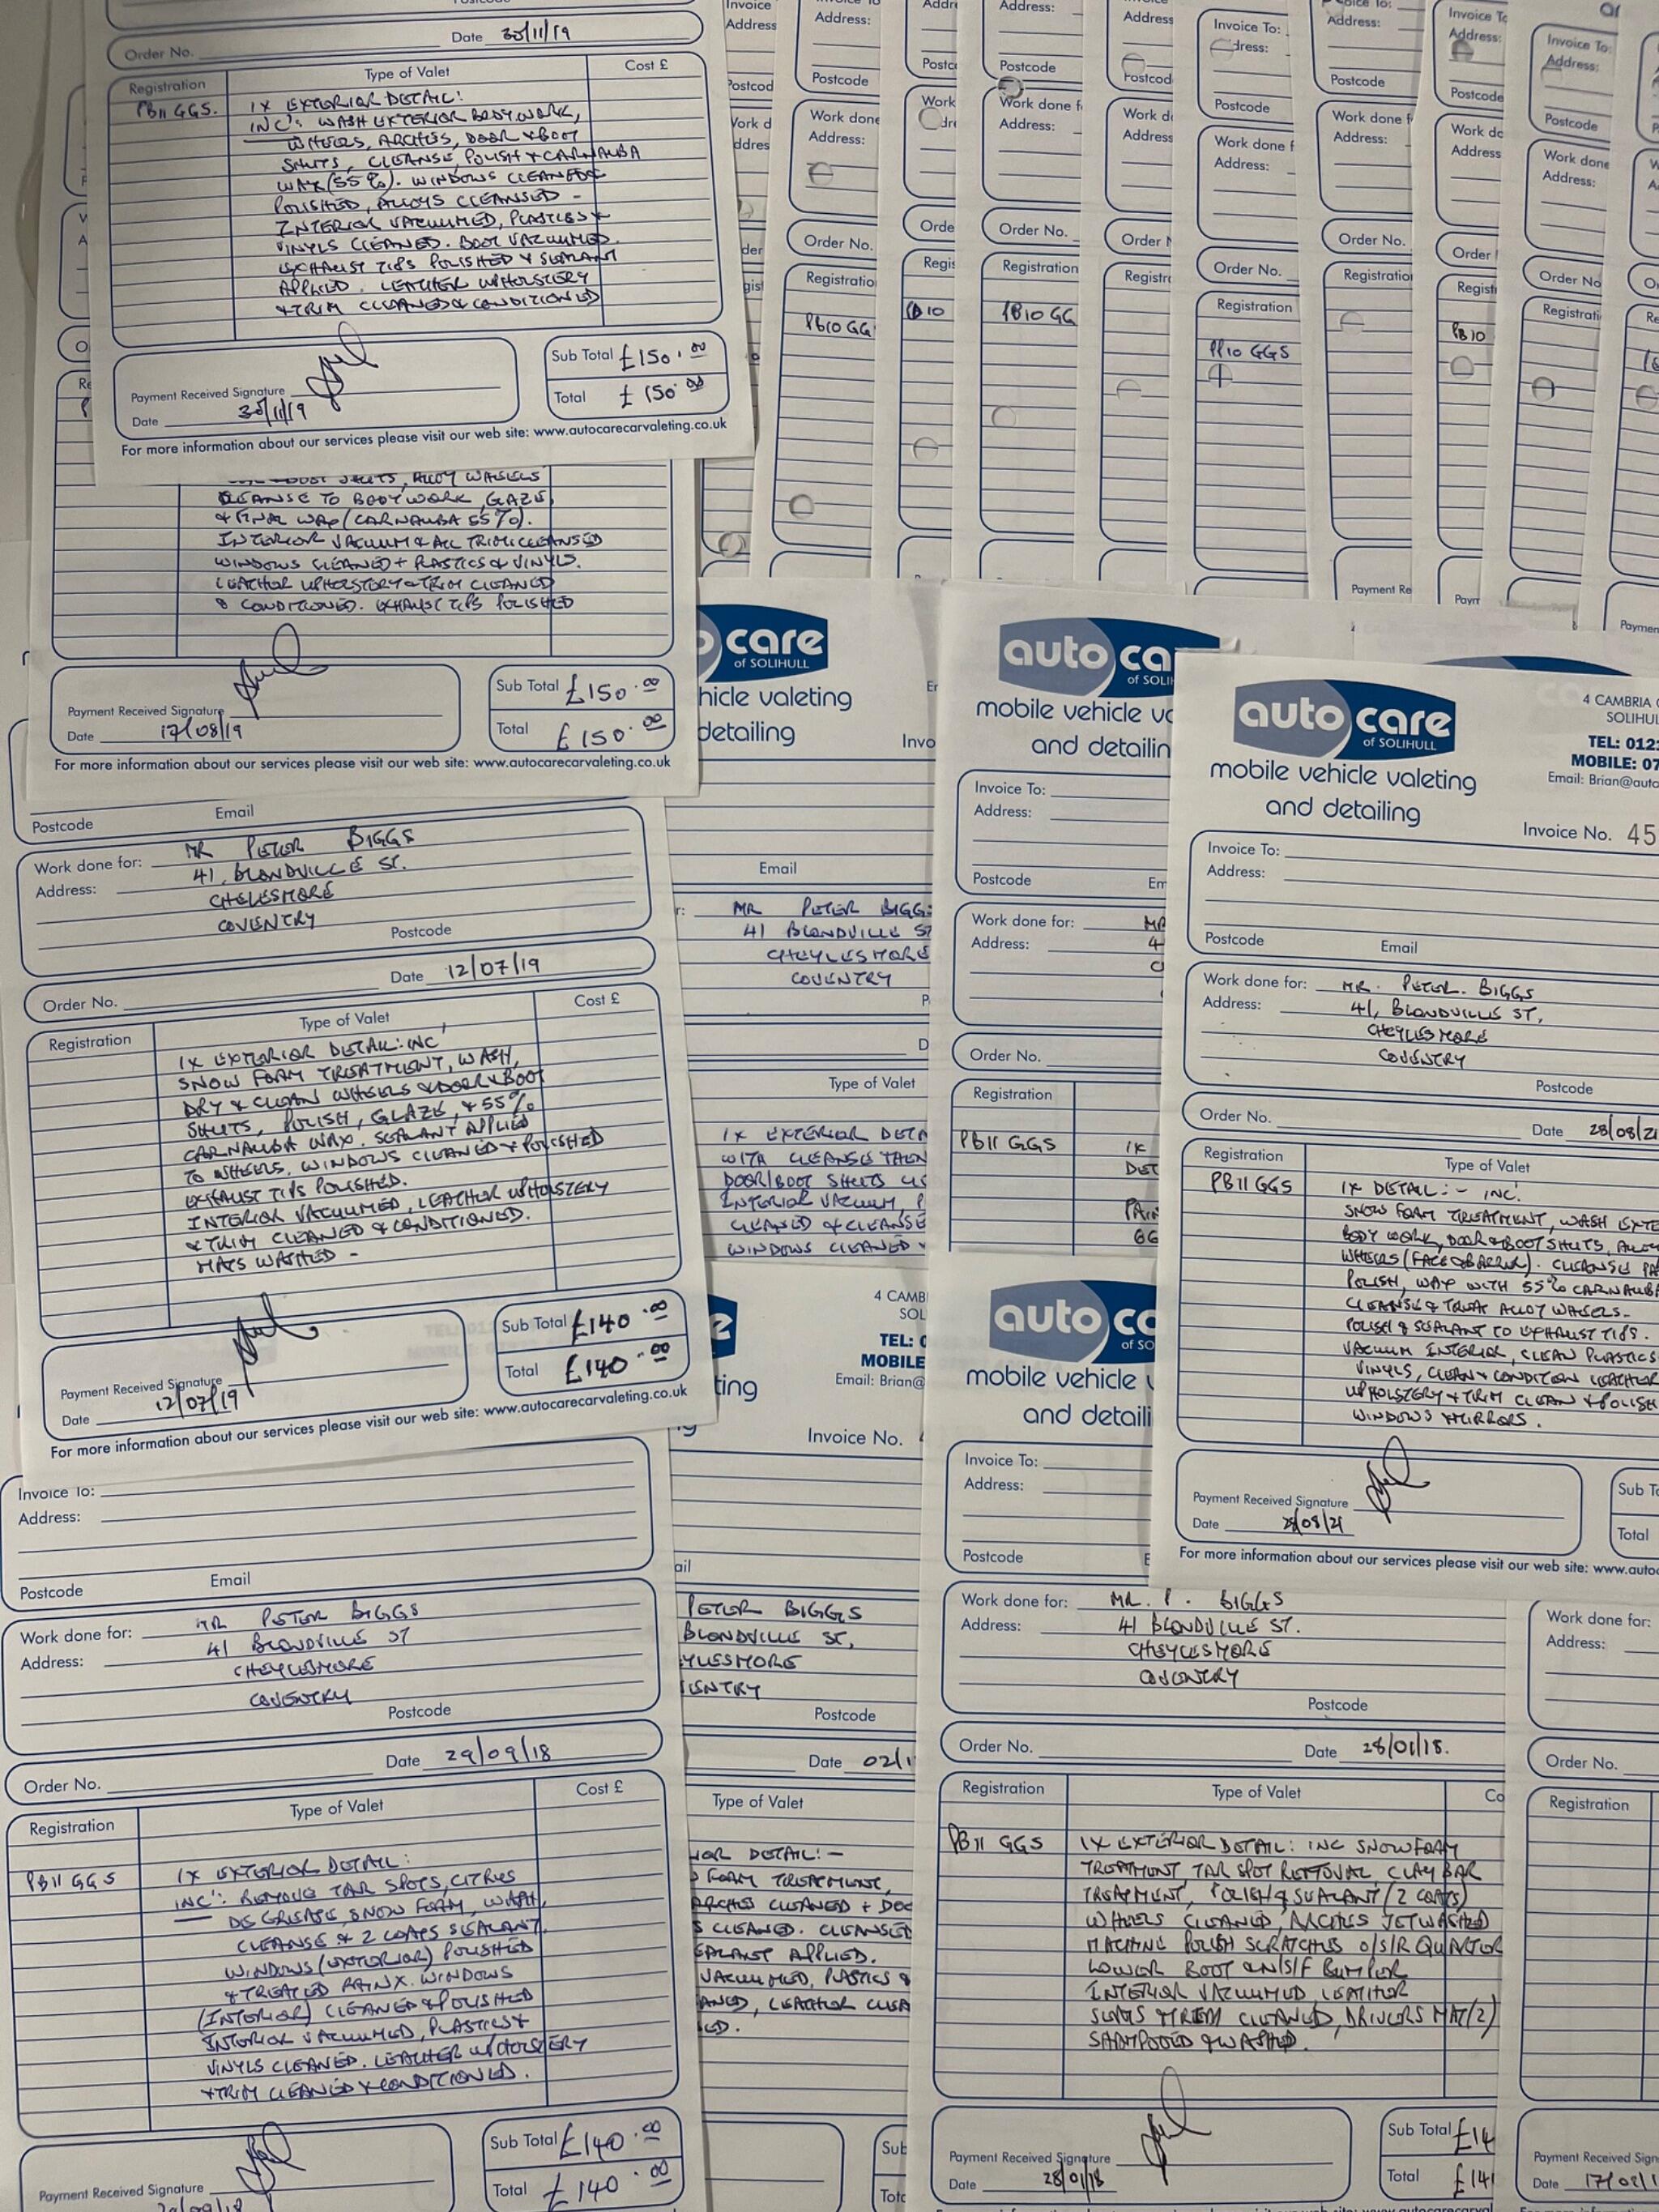 Postcode
Date 30/11/19
Order No.
Registration Type of Valet Cost £
PB11 GGS. 1X EXTERIOR DETAIL:
INC': WASH EXTERIOR BODYWORK,
WHEELS, ARCHES, DOOR & BOOT
SHUTS, CLEANSE, POLISH & CARNAUBA
WAX (55%). WINDOWS CLEANED &
POLISHED, ALLOYS CLEANSED -
INTERIOR VACUUMED, PLASTICS &
VINYLS CLEANED. BOOT VACUUMED.
EXHAUST TIPS POLISHED & SEALANT
APPLIED. LEATHER UPHOLSTERY
& TRIM CLEANED & CONDITIONED
Sub Total £150.00
Payment Received Signature
Total £150.00
Date 30/11/19
For more information about our services please visit our web site: www.autocarecarvaleting.co.uk
SHUTS, ALLOY WHEELS
CLEANSE TO BODYWORK, GLAZE,
& FINAL WAX (CARNAUBA 55%).
INTERIOR VACUUM & ALL TRIM CLEANSED
WINDOWS CLEANED + PLASTICS & VINYLS.
LEATHER UPHOLSTERY & TRIM CLEANED
& CONDITIONED. EXHAUST TIPS POLISHED
Sub Total £150.00
Payment Received Signature
Total £150.00
Date 17/08/19
For more information about our services please visit our web site: www.autocarecarvaleting.co.uk
Postcode Email
Work done for: MR PETER BIGGS
Address: 41, BLONDVILLE ST.
CHELESMORE
COVENTRY
Postcode
Order No. Date 12/07/19
Registration Type of Valet Cost £
1X EXTERIOR DETAIL: INC'
SNOW FOAM TREATMENT, WASH,
DRY & CLEAN WHEELS & DOOR & BOOT
SHUTS, POLISH, GLAZE, & 55%
CARNAUBA WAX. SEALANT APPLIED
TO WHEELS. WINDOWS CLEANED & POLISHED
EXHAUST TIPS POLISHED.
INTERIOR VACUUMED, LEATHER UPHOLSTERY
& TRIM CLEANED & CONDITIONED.
MATS WASHED -
Sub Total £140.00
Payment Received Signature
Total £140.00
Date 12/07/19
For more information about our services please visit our web site: www.autocarecarvaleting.co.uk
Invoice To:
Address:
Postcode Email
Work done for: MR PETER BIGGS
Address: 41 BLONDVILLE ST
CHEYLESMORE
COVENTRY
Postcode
Order No. Date 29/09/18
Registration Type of Valet Cost £
PB11 GGS 1X EXTERIOR DETAIL:
INC': REMOVE TAR SPOTS, CITRUS
DEGREASE, SNOW FOAM, WASH,
CLEANSE & 2 COATS SEALANT
WINDOWS (EXTERIOR) POLISHED
& TREATED RAINX. WINDOWS
(INTERIOR) CLEANED & POLISHED
INTERIOR VACUUMED, PLASTICS &
VINYLS CLEANED. LEATHER UPHOLSTERY
& TRIM CLEANED & CONDITIONED.
Sub Total £140.00
Payment Received Signature
Total £140.00
Invoice To:
Address:
Postcode
Work done
Address:
Order No.
Registration
PB10 GG
PB10
Postcode
Work done f
Address:
Order No.
Registration
PB10 GG
Invoice To:
Postcode
Work done f
Address:
Order No.
Registration
PB10 GGS
Address:
Postcode
Work done f
Address:
Order No.
Payment Re
Invoice To
Address:
Postcode
Address
Order
PB10
Invoice To:
Address:
Postcode
Work done
Address:
Order No
care
of SOLIHULL
hicle valeting
detailing
Invo
Email
MR PETER BIGGS
41 BLONDVILLE ST
CHEYLESMORE
COVENTRY
Type of Valet
1X EXTERIOR DETA
WITH CLEANSE THEN
DOOR/BOOT SHUTS
INTERIOR VACUUM, P
CLEANED & CLEANSE
WINDOWS CLEANED &
4 CAMB
SOL
TEL: 0
MOBILE
Email: Brian@
ting
Invoice No.
ail
PETER BIGGS
BLONDVILLE ST,
YLESMORE
ENTRY
Postcode
Date 02/1
Type of Valet
IOR DETAIL:-
FOAM TREATMENT,
ARCHES CLEANED + DOO
S CLEANED. CLEANSED
SEALANT APPLIED.
VACUUMED, PLASTICS &
ANED, LEATHER CLEA
ED.
auto ca
of SOLI
mobile vehicle va
and detailin
Invoice To:
Address:
Postcode Em
Work done for: MR
Address: 4
C
Order No.
Registration
PB11 GGS 1X
DET
auto ca
of SO
mobile vehicle
and detaili
Invoice To:
Address:
Postcode E
Work done for: MR. P. BIGGS
Address: 41 BLONDVILLE ST.
CHEYLESMORE
COVENTRY
Postcode
Order No. Date 28/01/18.
Registration Type of Valet Co
PB11 GGS 1X EXTERIOR DETAIL: INC SNOWFOAM
TREATMENT TAR SPOT REMOVAL, CLAY BAR
TREATMENT, POLISH & SEALANT (2 COATS)
WHEELS CLEANED, ARCHES JETWASHED
MACHINE POLISH SCRATCHES O/S/R QUARTER
LOWER BOOT & N/S/F BUMPER
INTERIOR VACUUMED LEATHER
SEATS & TRIM CLEANED, DRIVERS MAT (2)
SHAMPOOED & WASHED.
Sub Total £14
Payment Received Signature
Total £14
Date 28/01/18
auto care
of SOLIHULL
mobile vehicle valeting
and detailing
4 CAMBRIA
SOLIHUL
TEL: 012
MOBILE: 07
Email: Brian@auto
Invoice No. 45
Invoice To:
Address:
Postcode Email
Work done for: MR. PETER. BIGGS
Address: 41, BLONDVILLE ST,
CHEYLESMORE
COVENTRY
Postcode
Order No. Date 28/08/21
Registration Type of Valet
PB11 GGS 1X DETAIL:- INC'
SNOW FOAM TREATMENT, WASH EXTE
BODY WORK, DOOR & BOOT SHUTS, ALLOY
WHEELS (FACE & BARREL). CLEANSE PA
POLISH, WAX WITH 55% CARNAUBA
CLEANSE & TREAT ALLOY WHEELS.
POLISH & SEALANT TO EXHAUST TIPS.
VACUUM INTERIOR, CLEAN PLASTICS
VINYLS, CLEAN & CONDITION LEATHER
UPHOLSTERY & TRIM CLEAN & POLISH
WINDOWS & MIRRORS.
Sub To
Payment Received Signature
Total
Date 28/08/21
For more information about our services please visit our web site: www.auto
Work done for:
Address:
Order No.
Registration
Payment Received Sign
Date 17/02/1